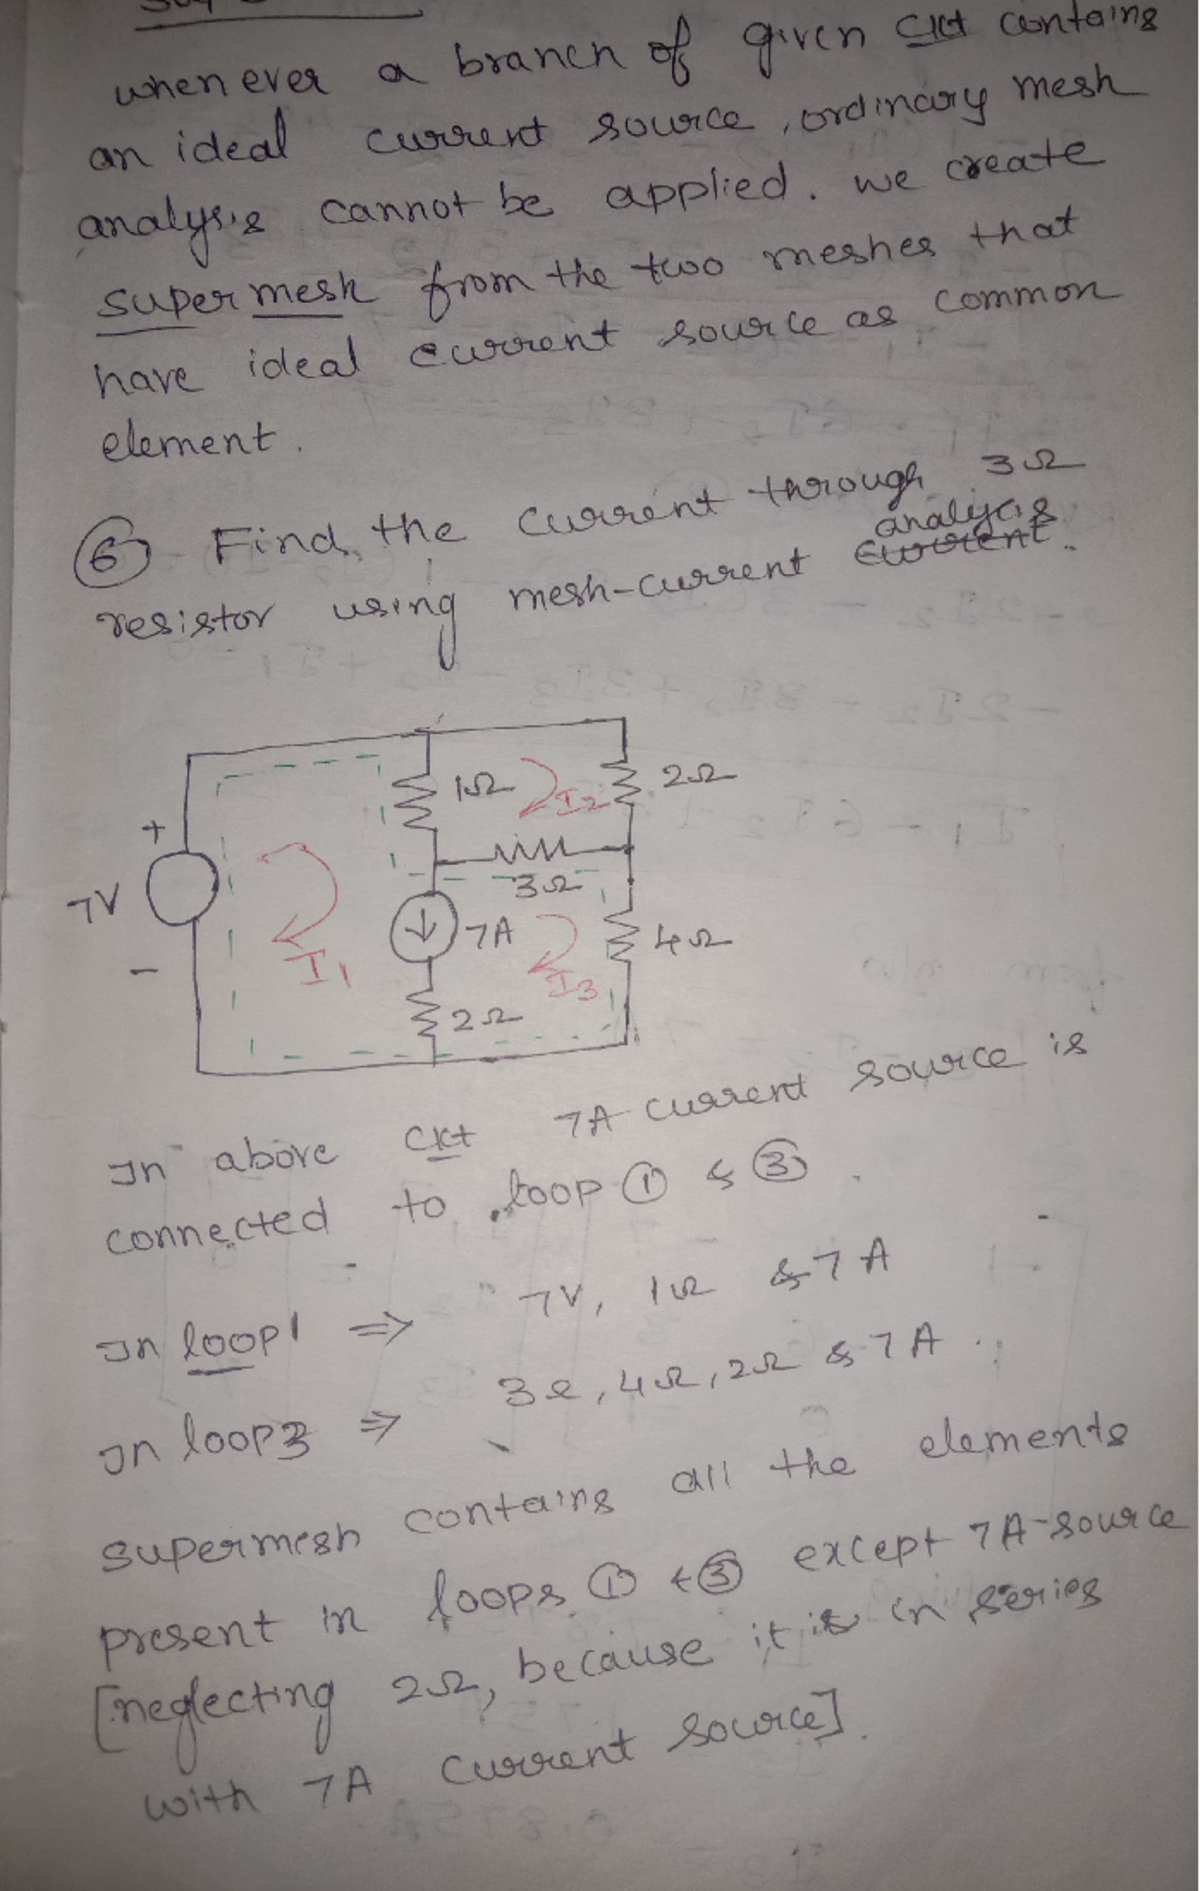 whenever a branch of given ckt contains
an ideal current source, ordinary mesh
analysis cannot be applied. we create
super mesh from the two meshes that
have ideal current source as common
element.
⑥ Find the current through 3Ω
analysis
resistor using mesh-current current.
1Ω
I2
2Ω
+
7V
3Ω
7A
4Ω
I1
I3
-
2Ω
In above ckt 7A current source is
connected to loop ① & ③.
In loop1 ⇒ 7V, 1Ω & 7A
In loop3 ⇒ 3Ω, 4Ω, 2Ω & 7A.
supermesh contains all the elements
present in loops ① & ③ except 7A-source
[neglecting 2Ω, because it is in series
with 7A current source].